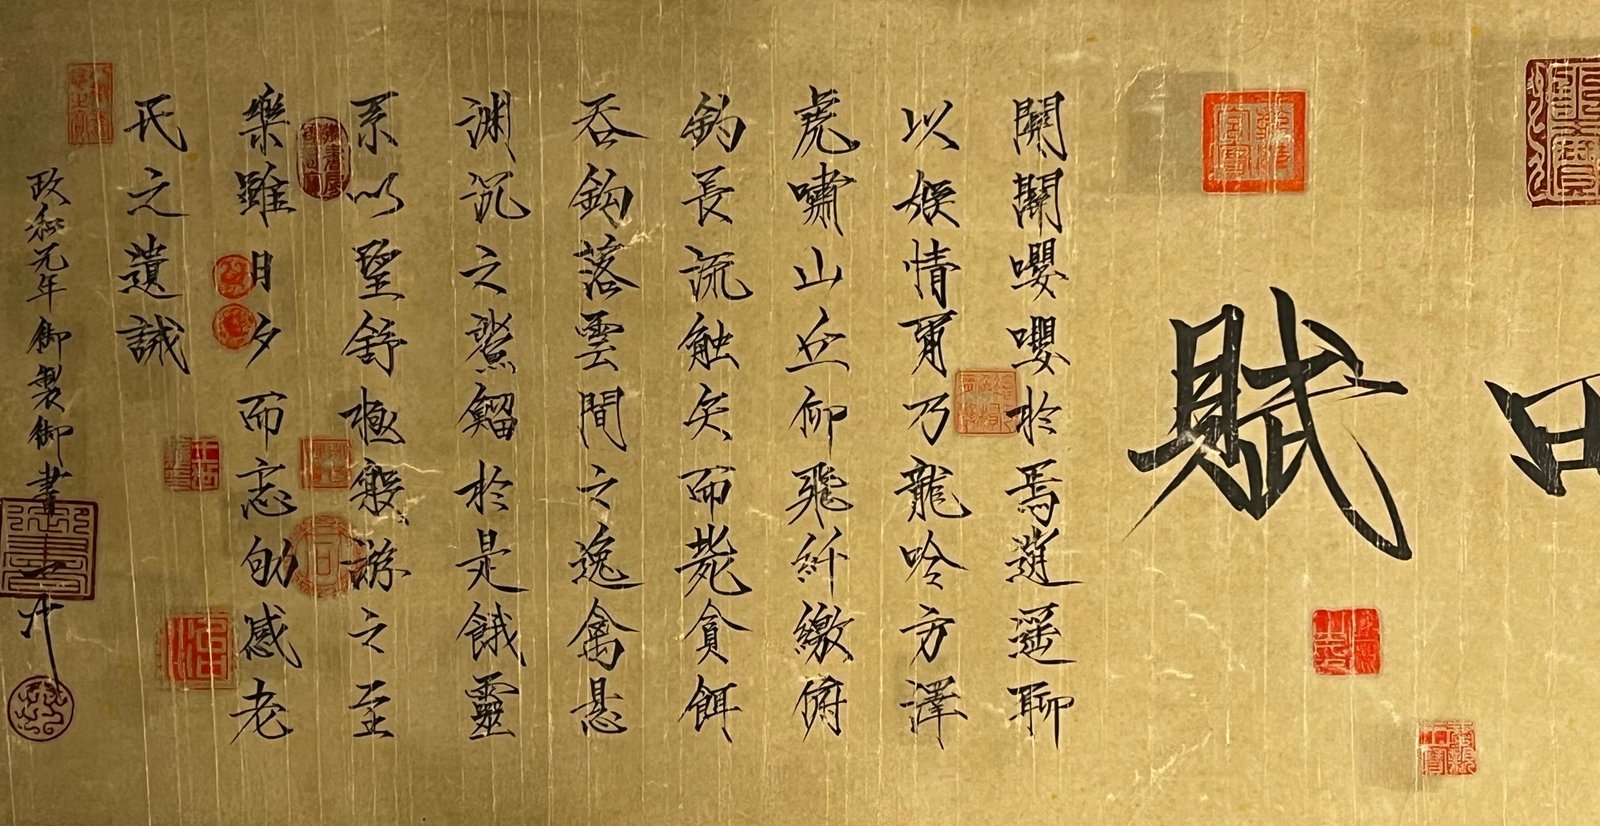 田賦
關關嚶嚶於焉逍遥聊
以娱情爾乃龍吟方澤
虎嘯山丘仰飛纤繳俯
釣長流触矢而斃貪餌
吞鈎落雲間之逸禽悬
渊沉之鯊鰡於是餓靈
系以望舒極般游之至
樂雖日夕而忘劬感老
氏之遺誡
政和元年御製御書
御書